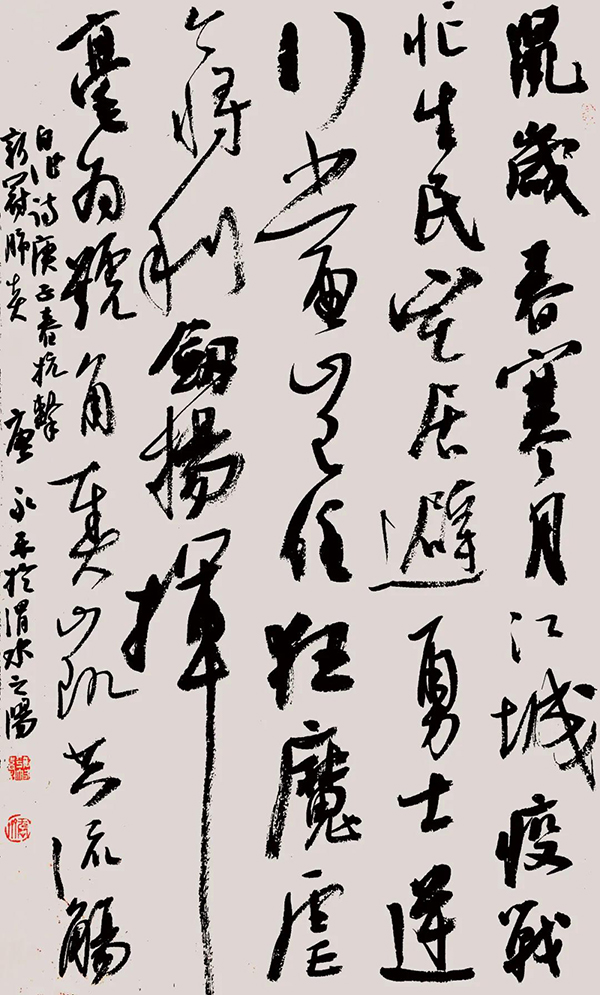 鼠歲春寒月江城疫戰
忙生民宅居避勇士逆
行當豈任狂魔虐
今將利劍揚揮
毫為號角奏凱共流觴
自作詩庚子春抗擊
新冠肺炎 唐永平於渭水之陽